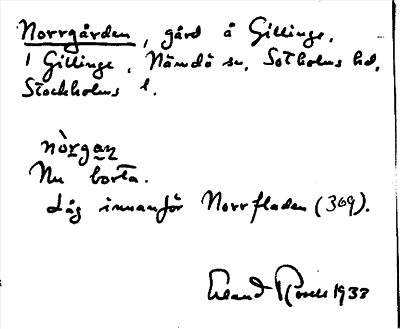 Norrgården, gård å Gillinge,
1 Gillinge, Nämdö sn, Sotholms hd,
Stockholms l.
nòrgan
Nu borta.
Låg innanför Norrfladen (369).
Erland Rosell 1933